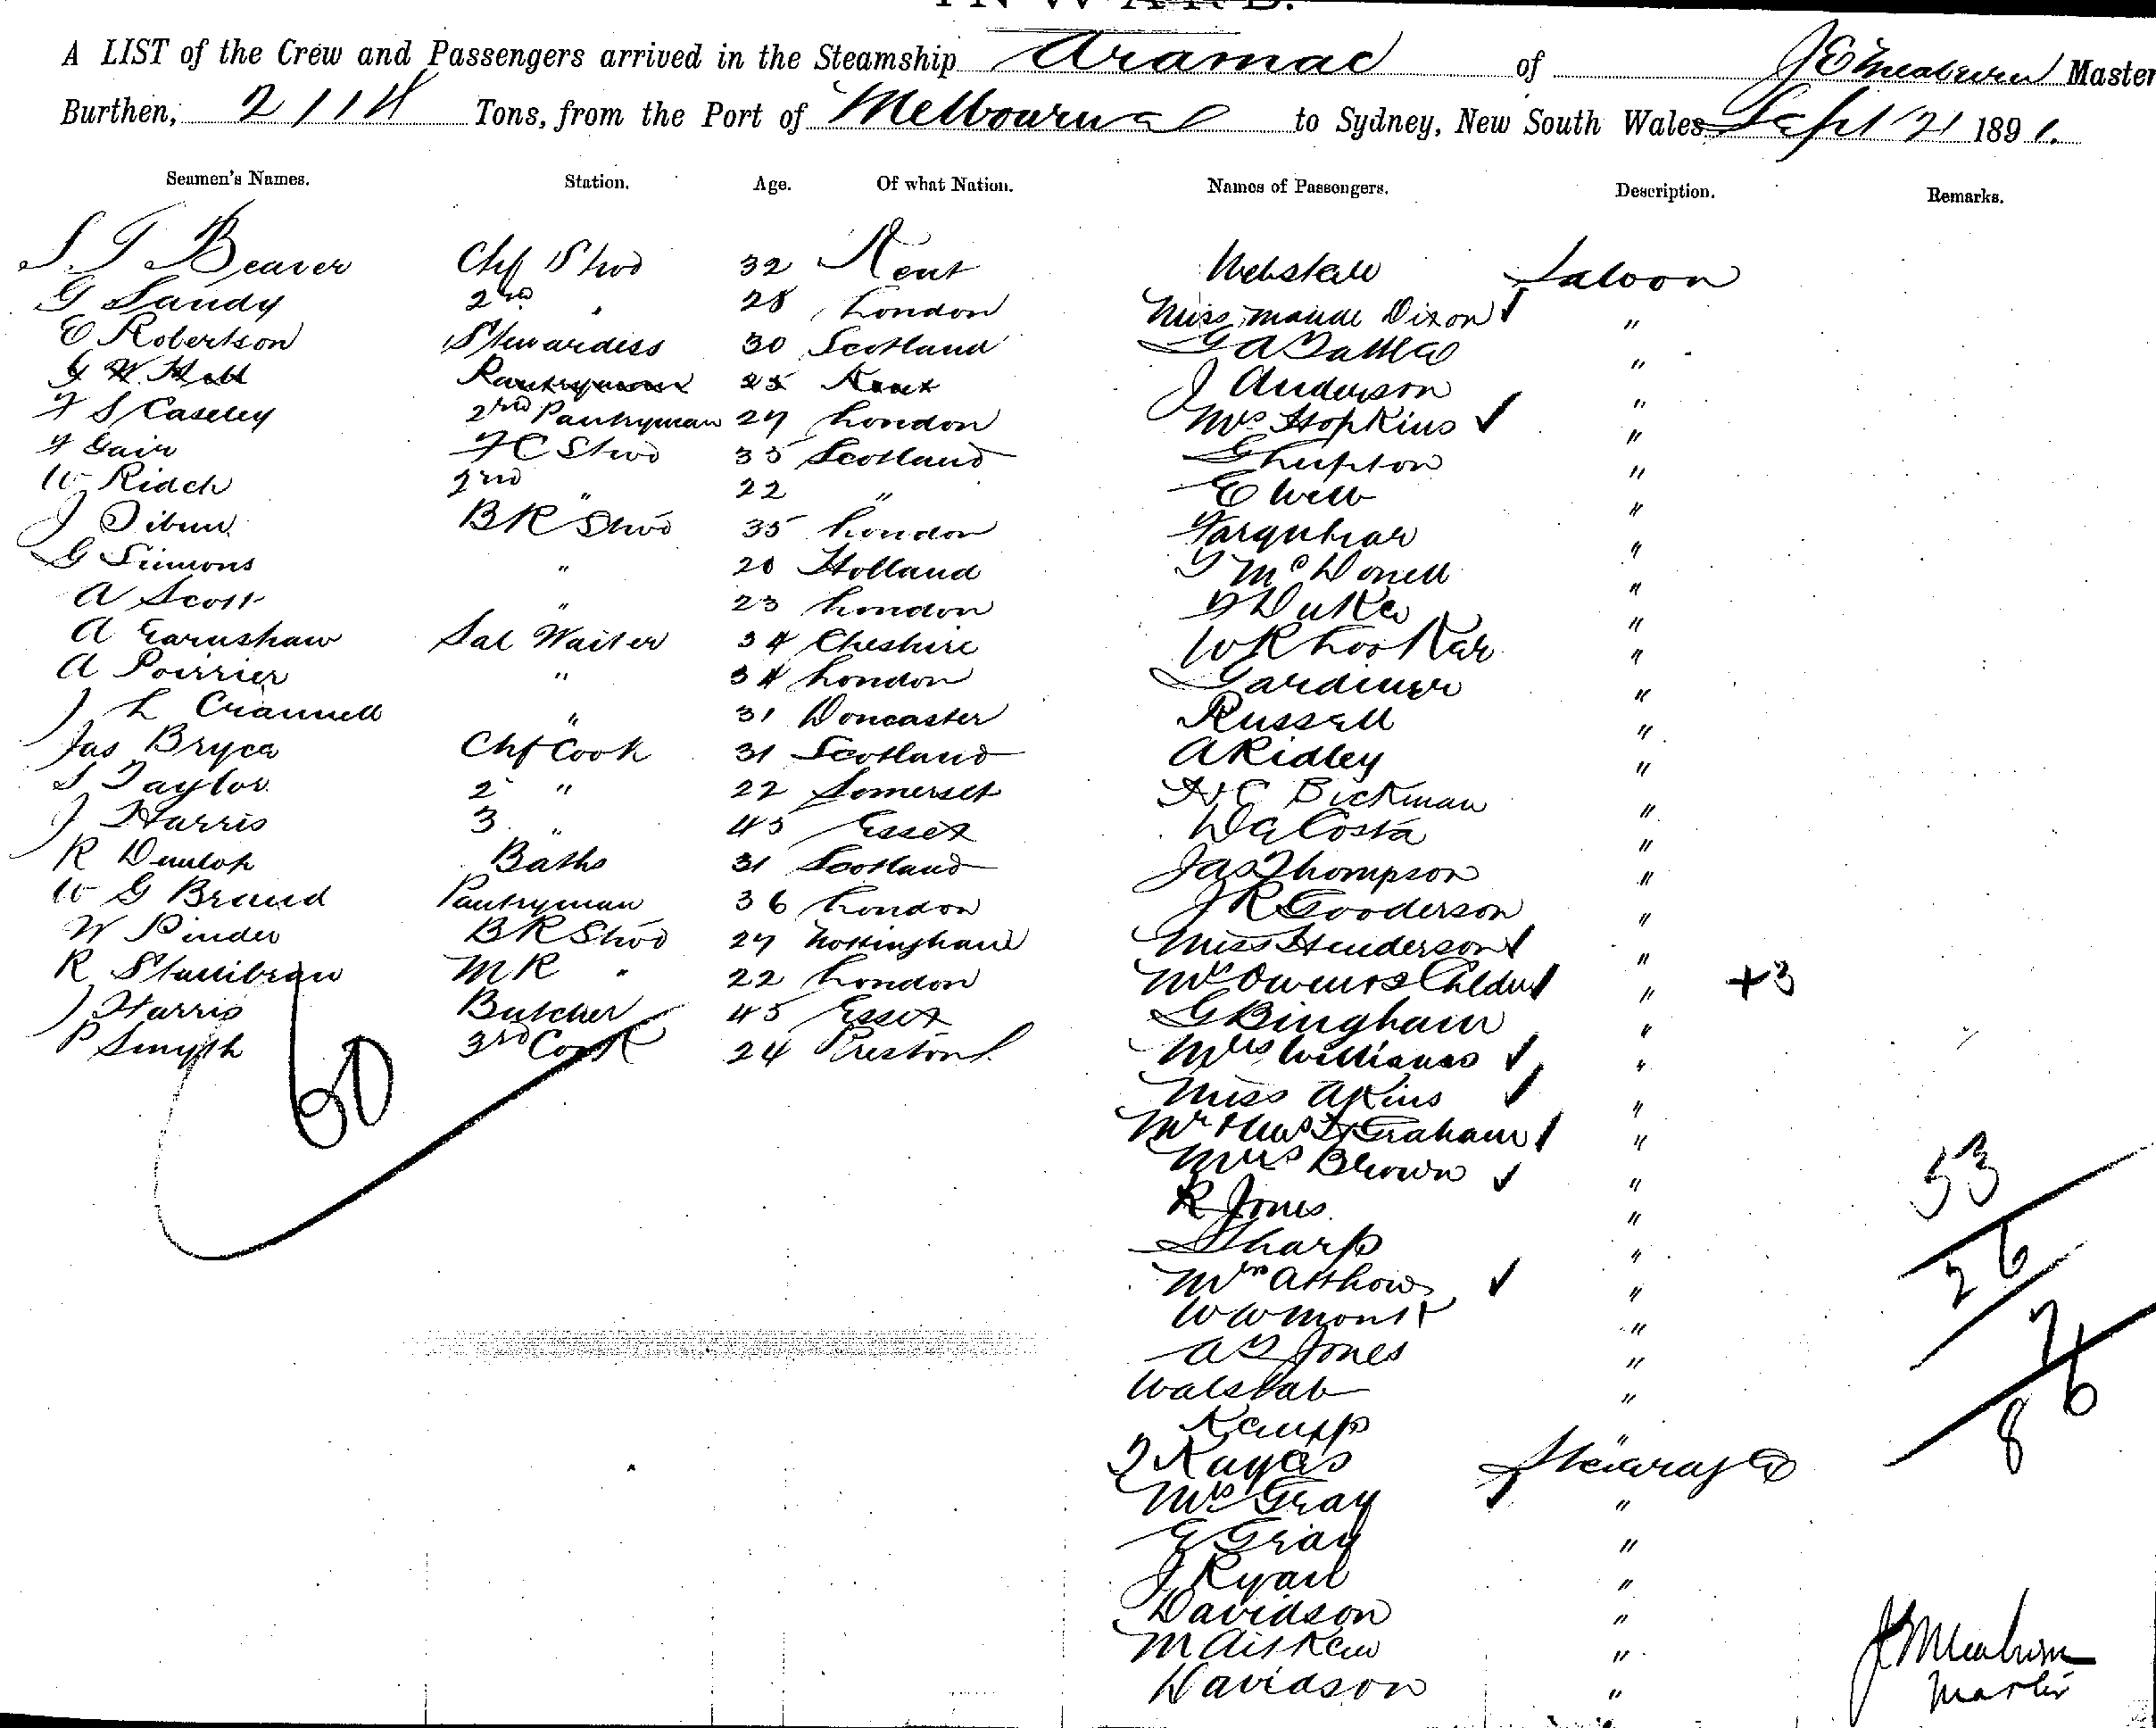 INWARD.
A LIST of the Crew and Passengers arrived in the Steamship Aramac of Master
Burthen, 2114 Tons, from the Port of Melbourne to Sydney, New South Wales Sept 21 1891.
Seamen's Names. Station. Age. Of what Nation. Names of Passengers. Description. Remarks.
S T Beaver Chf Stwd 32 Kent
G Sandy 2nd " 28 London
E Robertson Stewardess 30 Scotland
G W Hall Pantryman 25 Kent
F S Caseley 2nd Pantryman 27 London
F Gair F C Stwd 35 Scotland
W Ridch 2nd " 22 "
J Dibun B R Stwd 35 London
G Simons " 20 Holland
A Scott " 23 London
A Earnshaw Sal Waiter 34 Cheshire
A Poirrier " 34 London
J L Crannell " 31 Doncaster
Jas Bryce Chf Cook 31 Scotland
S Taylor 2 " 22 Somerset
J Harris 3 " 45 Essex
R Dunlop Baths 31 Scotland
W G Brand Pantryman 36 London
W Pinder B R Stwd 27 Nottingham
R Stallibran M R " 22 London
J Harris Butcher 45 Essex
P Smyth 3rd Cook 24 Preston
60
Saloon
Miss Maude Dixon "
"
J Anderson "
Mrs Hopkins "
G Lupton "
E Webb "
Farquhar "
T McDonell "
D Duke "
W R Looker "
Gardiner "
Russell "
A Ridley "
H C Bickman "
Da Costa "
Jas Thompson "
J R Gooderson "
Miss Henderson "
Mrs Owens & 2 Childn " +3
G Bingham "
Mrs Williams "
Miss Akins "
Mr & Mrs Graham "
Mrs Brown "
R Jones "
Sharp "
Mrs Atthow "
W W Mont "
A D Jones "
Walstab "
Kempp "
T Kayes Steerage
Mrs Gray "
E Gray "
J Ryan "
Davidson "
M Aitken "
Davidson "
53
26
76
8
Master